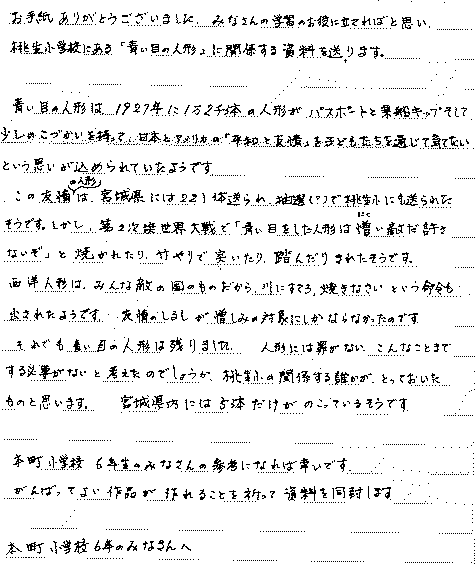 お手紙ありがとうございました。みなさんの学習のお役に立てればと思い、
桃生小学校にある「青い目の人形」に関係する資料を送ります。
青い目の人形は、1927年に1万2千体の人形が、パスポートと乗船キップそして
少しのこづかいを持って、日本とアメリカの「平和と友情」を子どもたちを通じて育てたい
という思いが込められていたようです
この友情の人形は、宮城県には221体送られ、抽選(くじ)で桃生小にも送られた
そうです。しかし、第2次世界大戦で「青い目をした人形は憎い敵だ許さ
ないぞ」と焼かれたり、竹やりで突いたり、踏んだりされたそうです。
西洋人形は、みんな敵の国のものだから、川にすてろ、焼きなさいという命令も
出されたようです。友情のしるしが憎しみの対象にしかならなかったのです
それでも青い目の人形は残りました。人形には罪がない、こんなことまで
する必要がないと考えたのでしょうか、桃生小の関係する誰かが、とっておいた
ものと思います。宮城県内には5体だけがのこっているそうです
本町小学校6年生のみなさんの参考になれば幸いです。
がんばってよい作品が作れることを祈って資料を同封します
本町小学校6年のみなさんへ